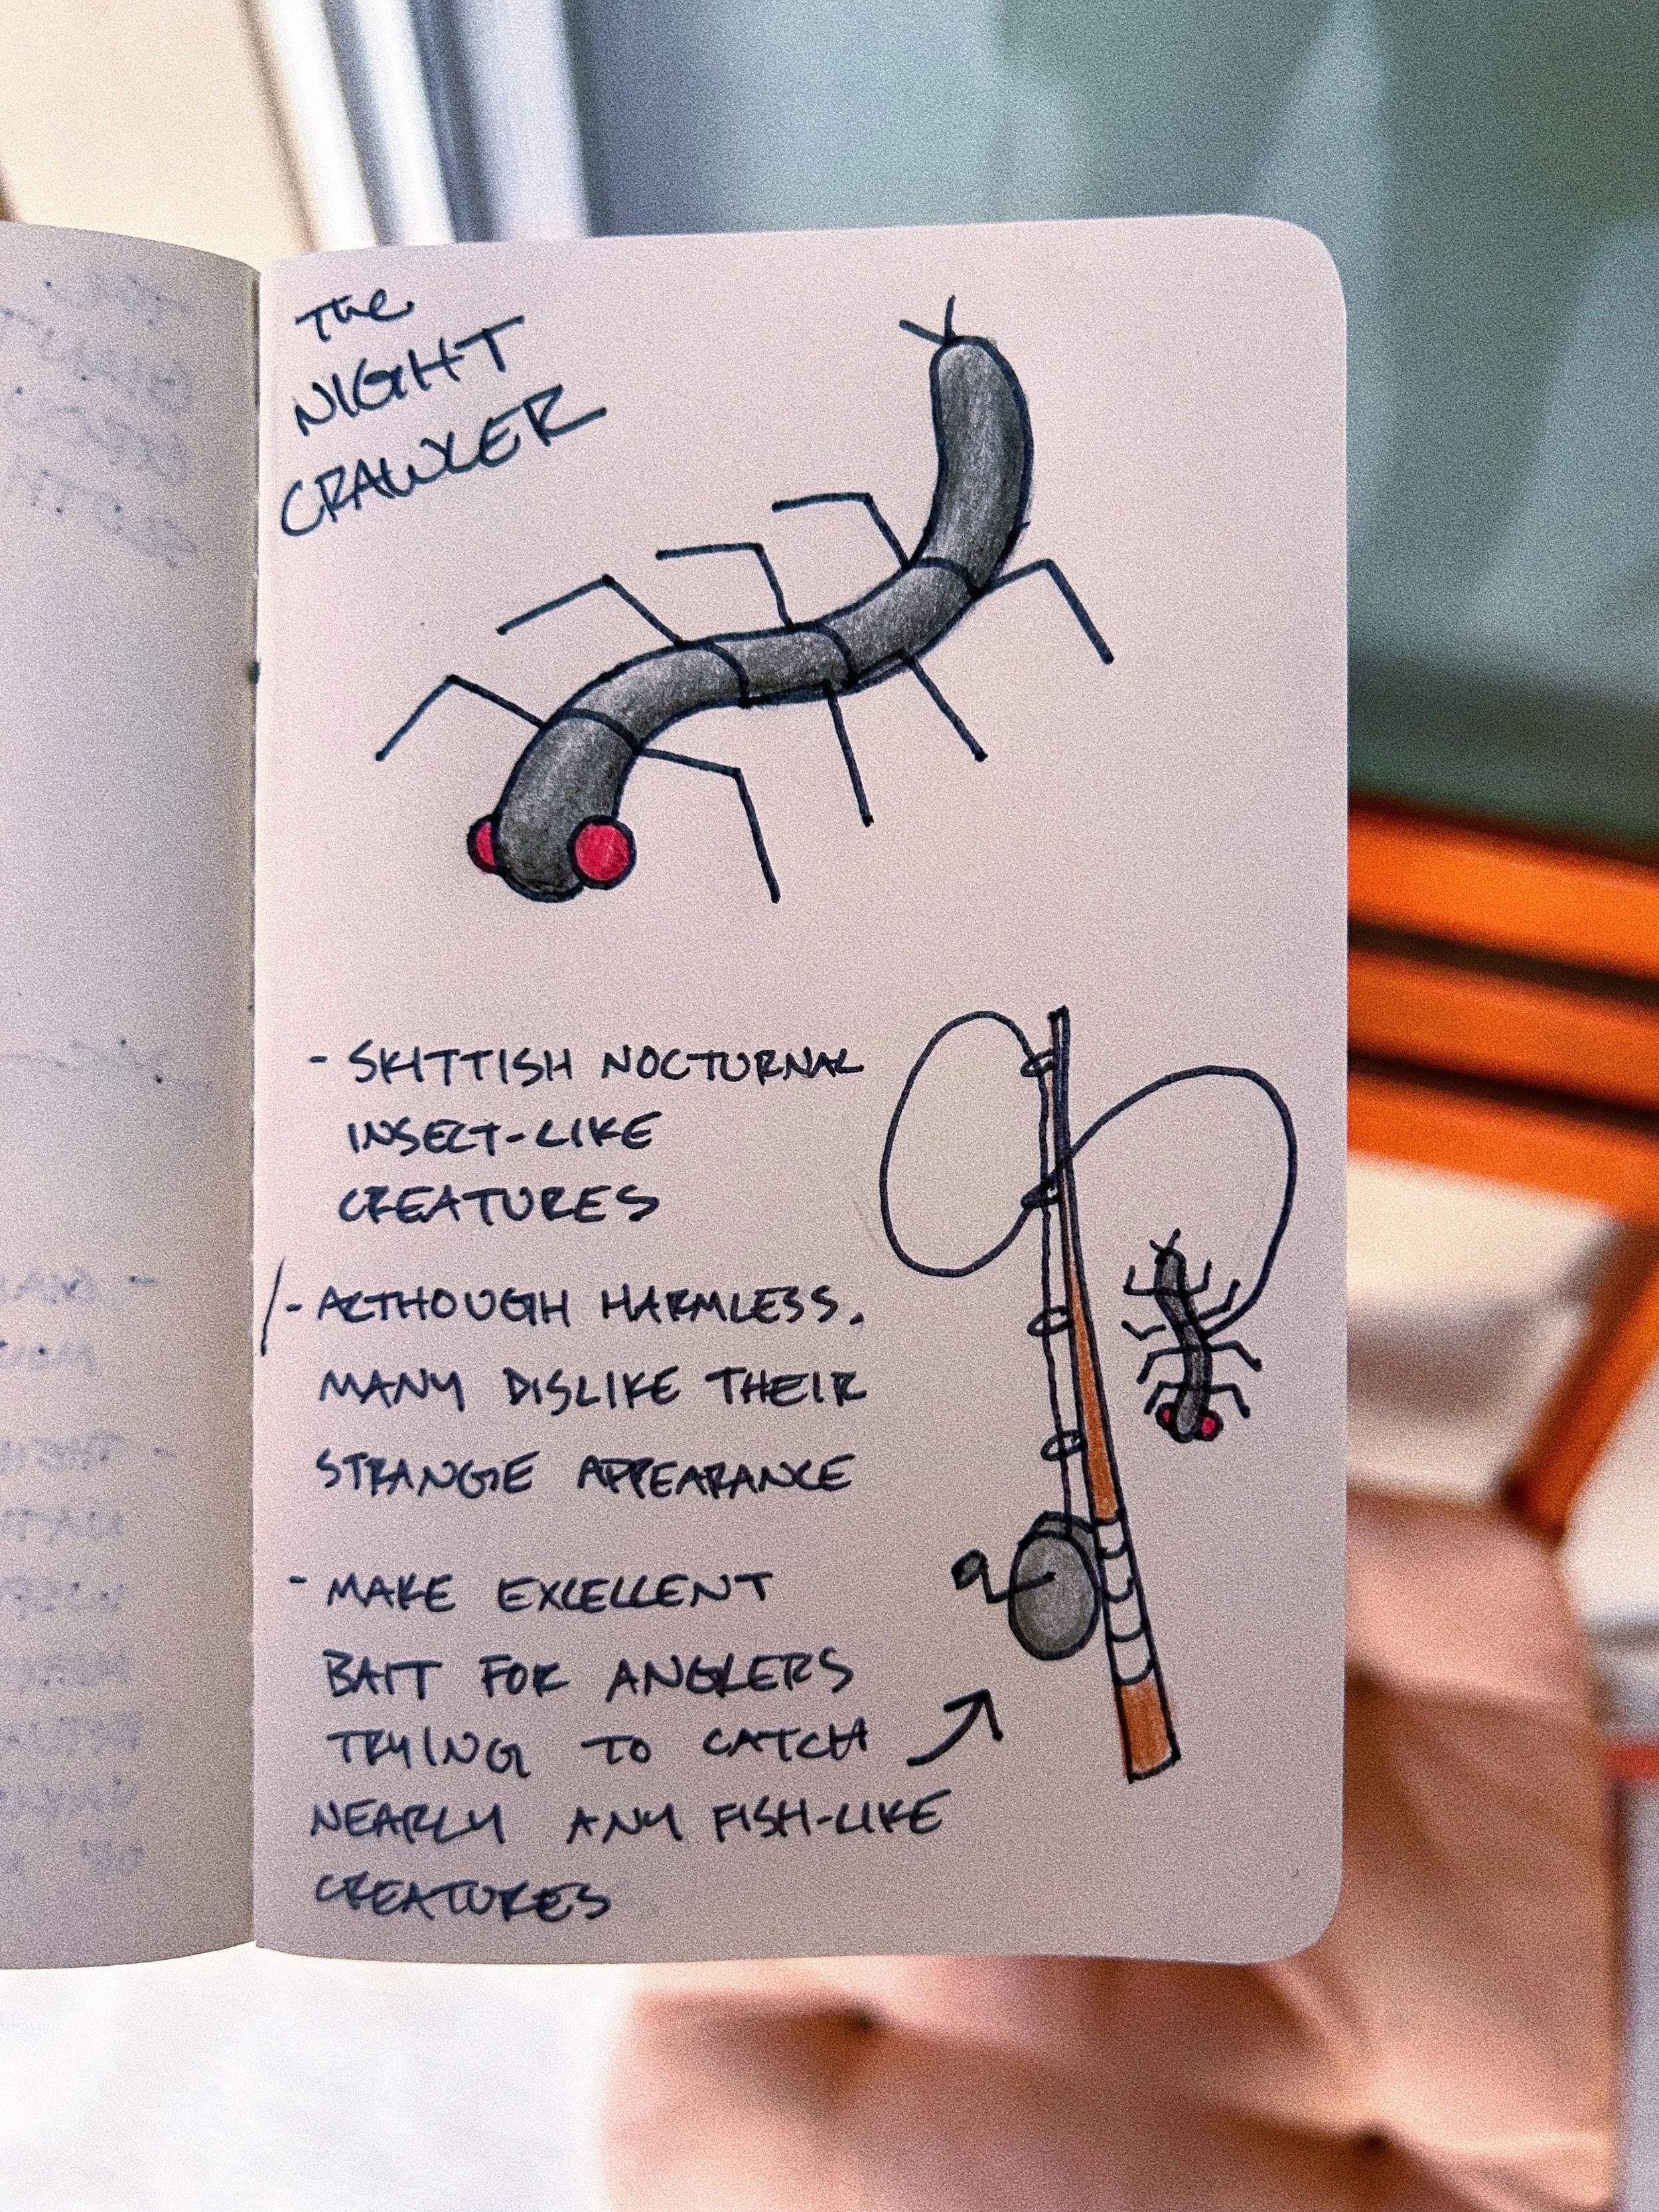 The
NIGHT
CRAWLER
- SKITTISH NOCTURNAL
INSECT-LIKE
CREATURES
- ALTHOUGH HARMLESS,
MANY DISLIKE THEIR
STRANGE APPEARANCE
- MAKE EXCELLENT
BAIT FOR ANGLERS
TRYING TO CATCH
NEARLY ANY FISH-LIKE
CREATURES